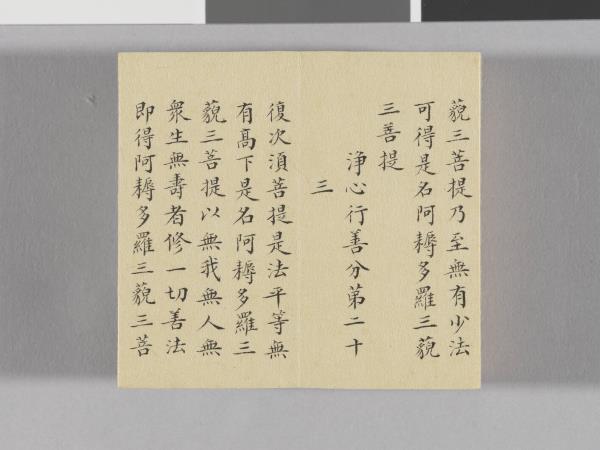 藐三菩提乃至無有少法
可得是名阿耨多羅三藐
三菩提
淨心行善分第二十
三
復次湏菩提是法平等無
有髙下是名阿耨多羅三
藐三菩提以無我無人無
衆生無壽者修一切善法
即得阿耨多羅三藐三菩